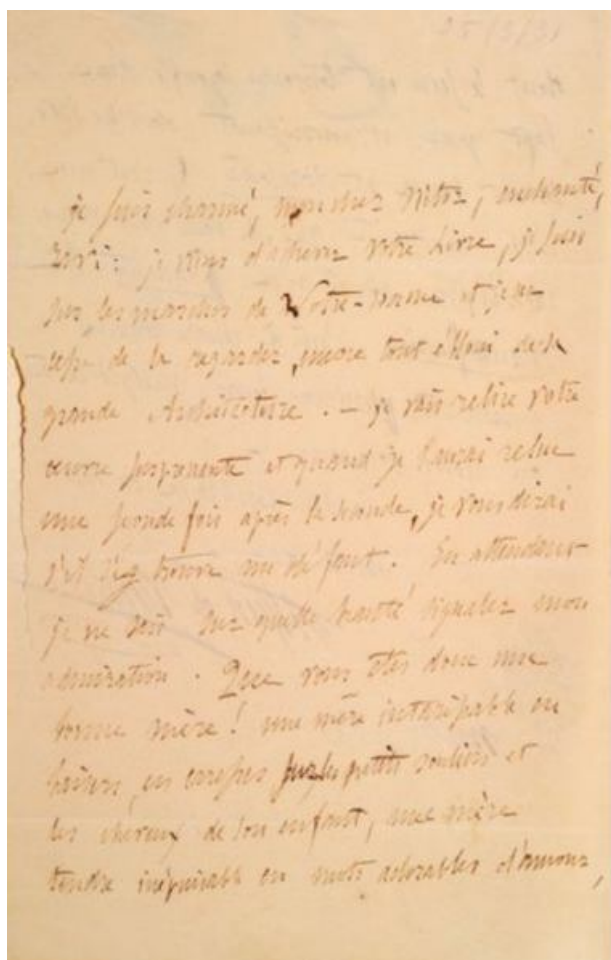 je suis charmé, mon cher Victor, enchanté,
ravi: je viens d'achever Votre Livre, je suis
sur les marches de Notre-Dame et je ne
cesse de la regarder, encore tout ébloui de sa
grande Architecture. — je vais relire votre
œuvre surprenante et quand je l'aurai relue
une seconde fois après la seconde, je vous dirai
s'il s'y trouve un défaut. En attendant
je ne sais sur quelle beauté signaler mon
admiration. Que vous êtes donc une
bonne mère! une mère intarissable en
baisers, en caresses sur les petits souliers et
les cheveux de son enfant, une mère
tendre inépuisable en mots adorables d'amour,